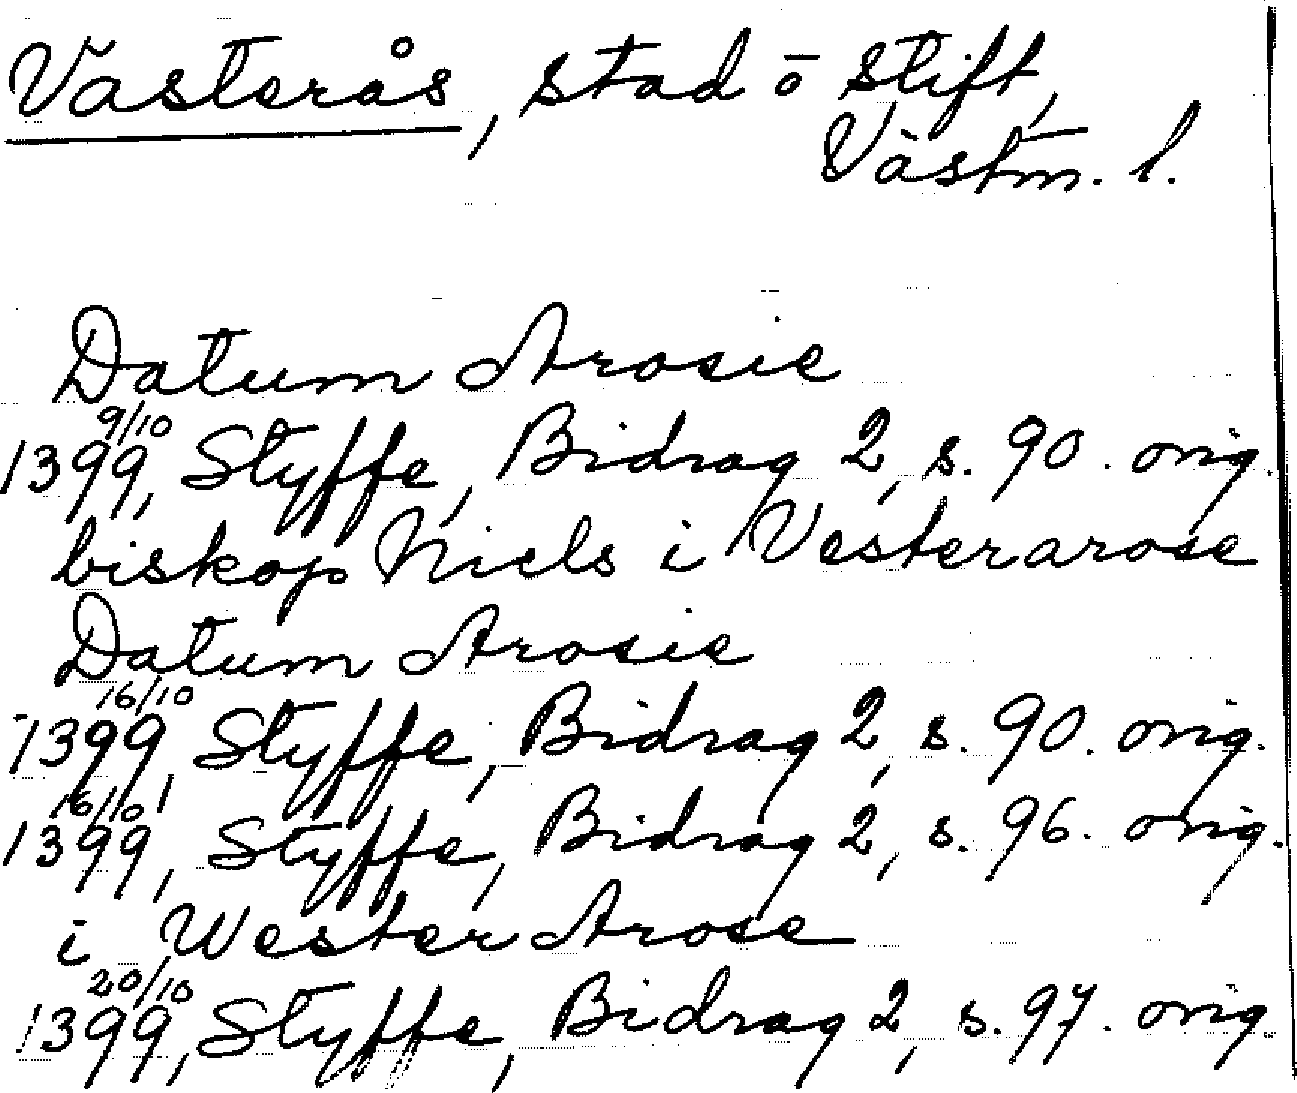 Västerås, stad ō stift,
Västm. l.
Datum Arosie
9/10
1399, Styffe, Bidrag 2, s. 90. orig.
biskop Niels i Vesterarose
Datum Arosie
16/10
1399, Styffe, Bidrag 2, s. 90. orig.
16/10
1399, Styffe, Bidrag 2, s. 96. orig.
i Wester Arose
20/10
1399, Styffe, Bidrag 2, s. 97. orig.